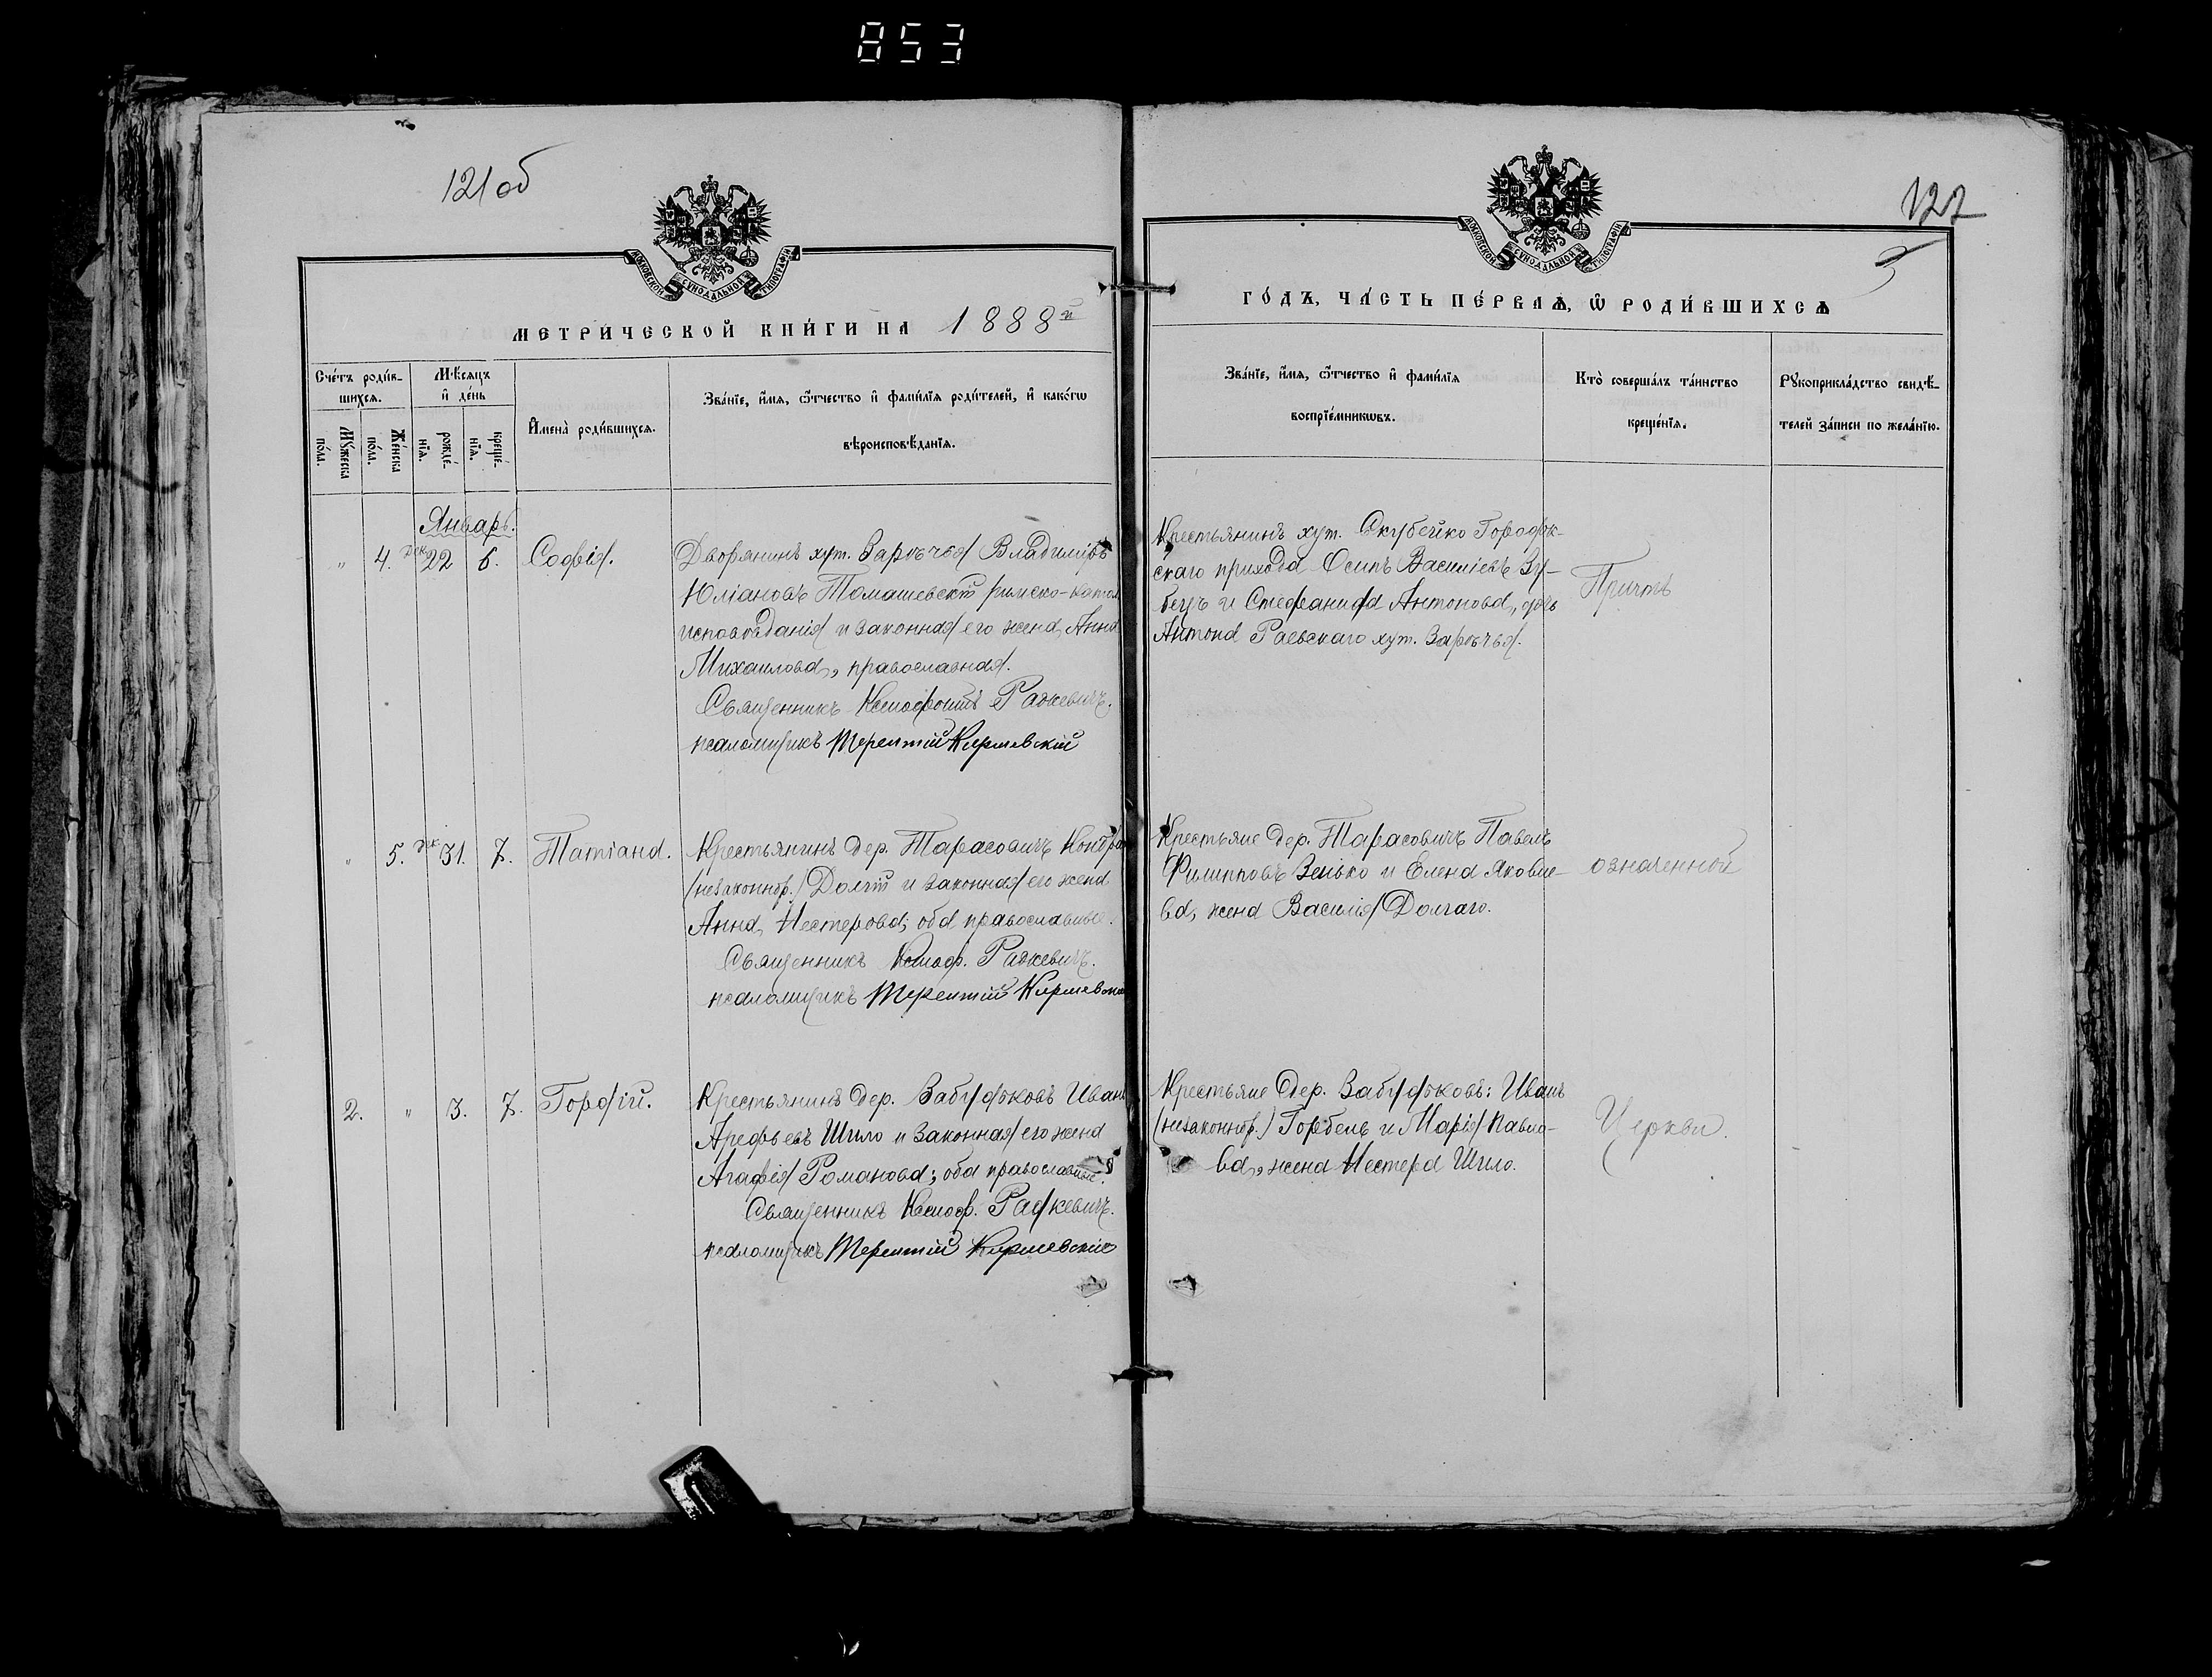 853
121об
МОСКОВСКОЙ СУНОДАЛЬНОЙ ТИПОГРАФІИ
МЕТРИ́ЧЕСКОЙ КНИ́ГИ НА 1888й
Сче́тъ роди́в-
шихся.
Мѣ́сяцъ
и҆ де́нь
Мꙋ́жеска
по́ла.
Же́нска
по́ла.
рожде́-
нїя.
креще́-
нїя.
И҆мена̀ роди́вшихся.
Зва́нїе, и҆́мя, ѻ҆́тчество и҆ фами́лїя роди́телей, и҆ како́гѡ
вѣроисповѣ́данїя.
Январь.
„ 4. Дек 22 6. Софія.
Дворянинъ хут. Зарѣчья Владиміръ
Юліановъ Томашевскій римско-катол
исповѣданія и законная его жена Анна
Михаилова, православная.
Священникъ Ксенофонтъ Радкевичъ.
псаломщикъ Терентій Киршевскій
„ 5. Дек 31. 7. Татіана.
Крестьянинъ дер. Тарасовичъ Кондра
(незаконнор.) Долгій и законная его жена
Анна Нестерова; оба православные.
Священникъ Ксеноф. Радкевичъ.
псаломщикъ Терентій
2. „ 3. 7. Гордій.
Крестьянинъ дер. Иванъ
Арефьевъ Шило и законная его жена
Агафія Романова; оба православные.
Священникъ Ксеноф. Радкевичъ.
псаломщикъ Терентій Киршевскій
122
3
МОСКОВСКОЙ СУНОДАЛЬНОЙ ТИПОГРАФІИ
ГО́ДЪ, ЧА́СТЬ ПЕ́РВАѦ, Ѡ҆ РОДИ́ВШИХСѦ
Зва́нїе, и҆́мя, ѻ҆́тчество и҆ фами́лїя
воспрїе́мникѡвъ.
Кто̀ соверша́лъ та́инство
креще́нїя.
Рꙋкоприкла́дство свидѣ́-
телей за́писи по жела́нїю.
Крестьянинъ хут. Скубейко
скаго прихода Осипъ Василіевъ Зу-
бецъ и Стефанида Антонова, дочь
Антона Раевскаго хут. Зарѣчья.
Причтъ
Крестьяне дер. Тарасовичъ Павелъ
Филипповъ Зенько и Елена Яковле-
ва, жена Василія Долгаго.
означенной
Крестьяне дер. Иванъ
(незаконнор.) Горбель и Марія Павло-
ва, жена Нестера Шило.
Церкви.